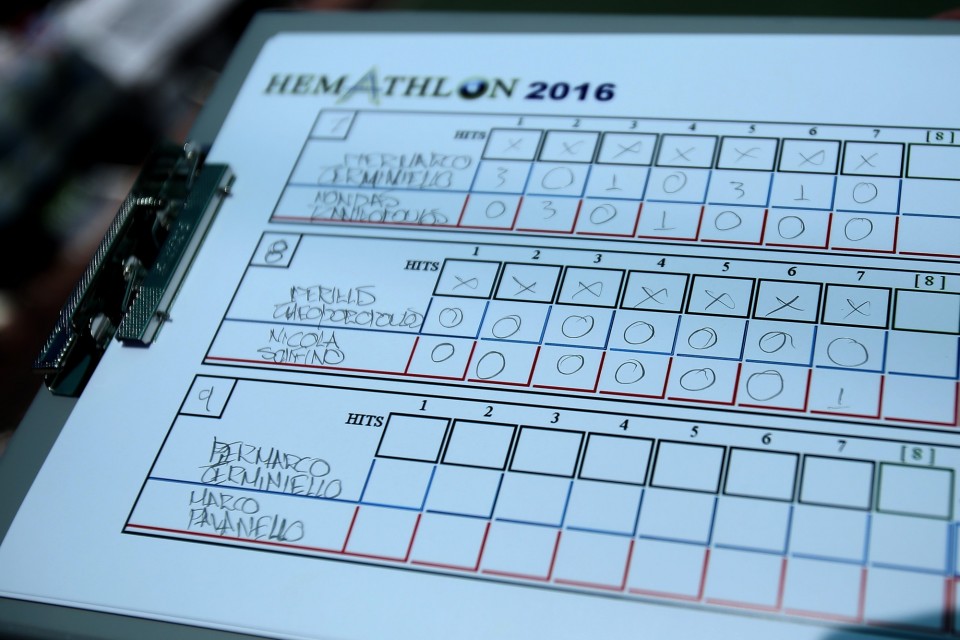 HEMATHLON 2016
7
HITS 1 2 3 4 5 6 7 [8]
x x x x x x x
PIERMARCO TERMINIELLO 3 0 1 0 3 1 0
0 3 0 1 0 0 0
8
HITS 1 2 3 4 5 6 7 [8]
x x x x x x x
PERILLS THEODOROPOULOS 0 0 0 0 0 0 0
NICOLA 0 0 0 0 0 0 1
9
HITS 1 2 3 4 5 6 7 [8]
PIERMARCO
TERMINIELLO
MARCO
PAVANELLO